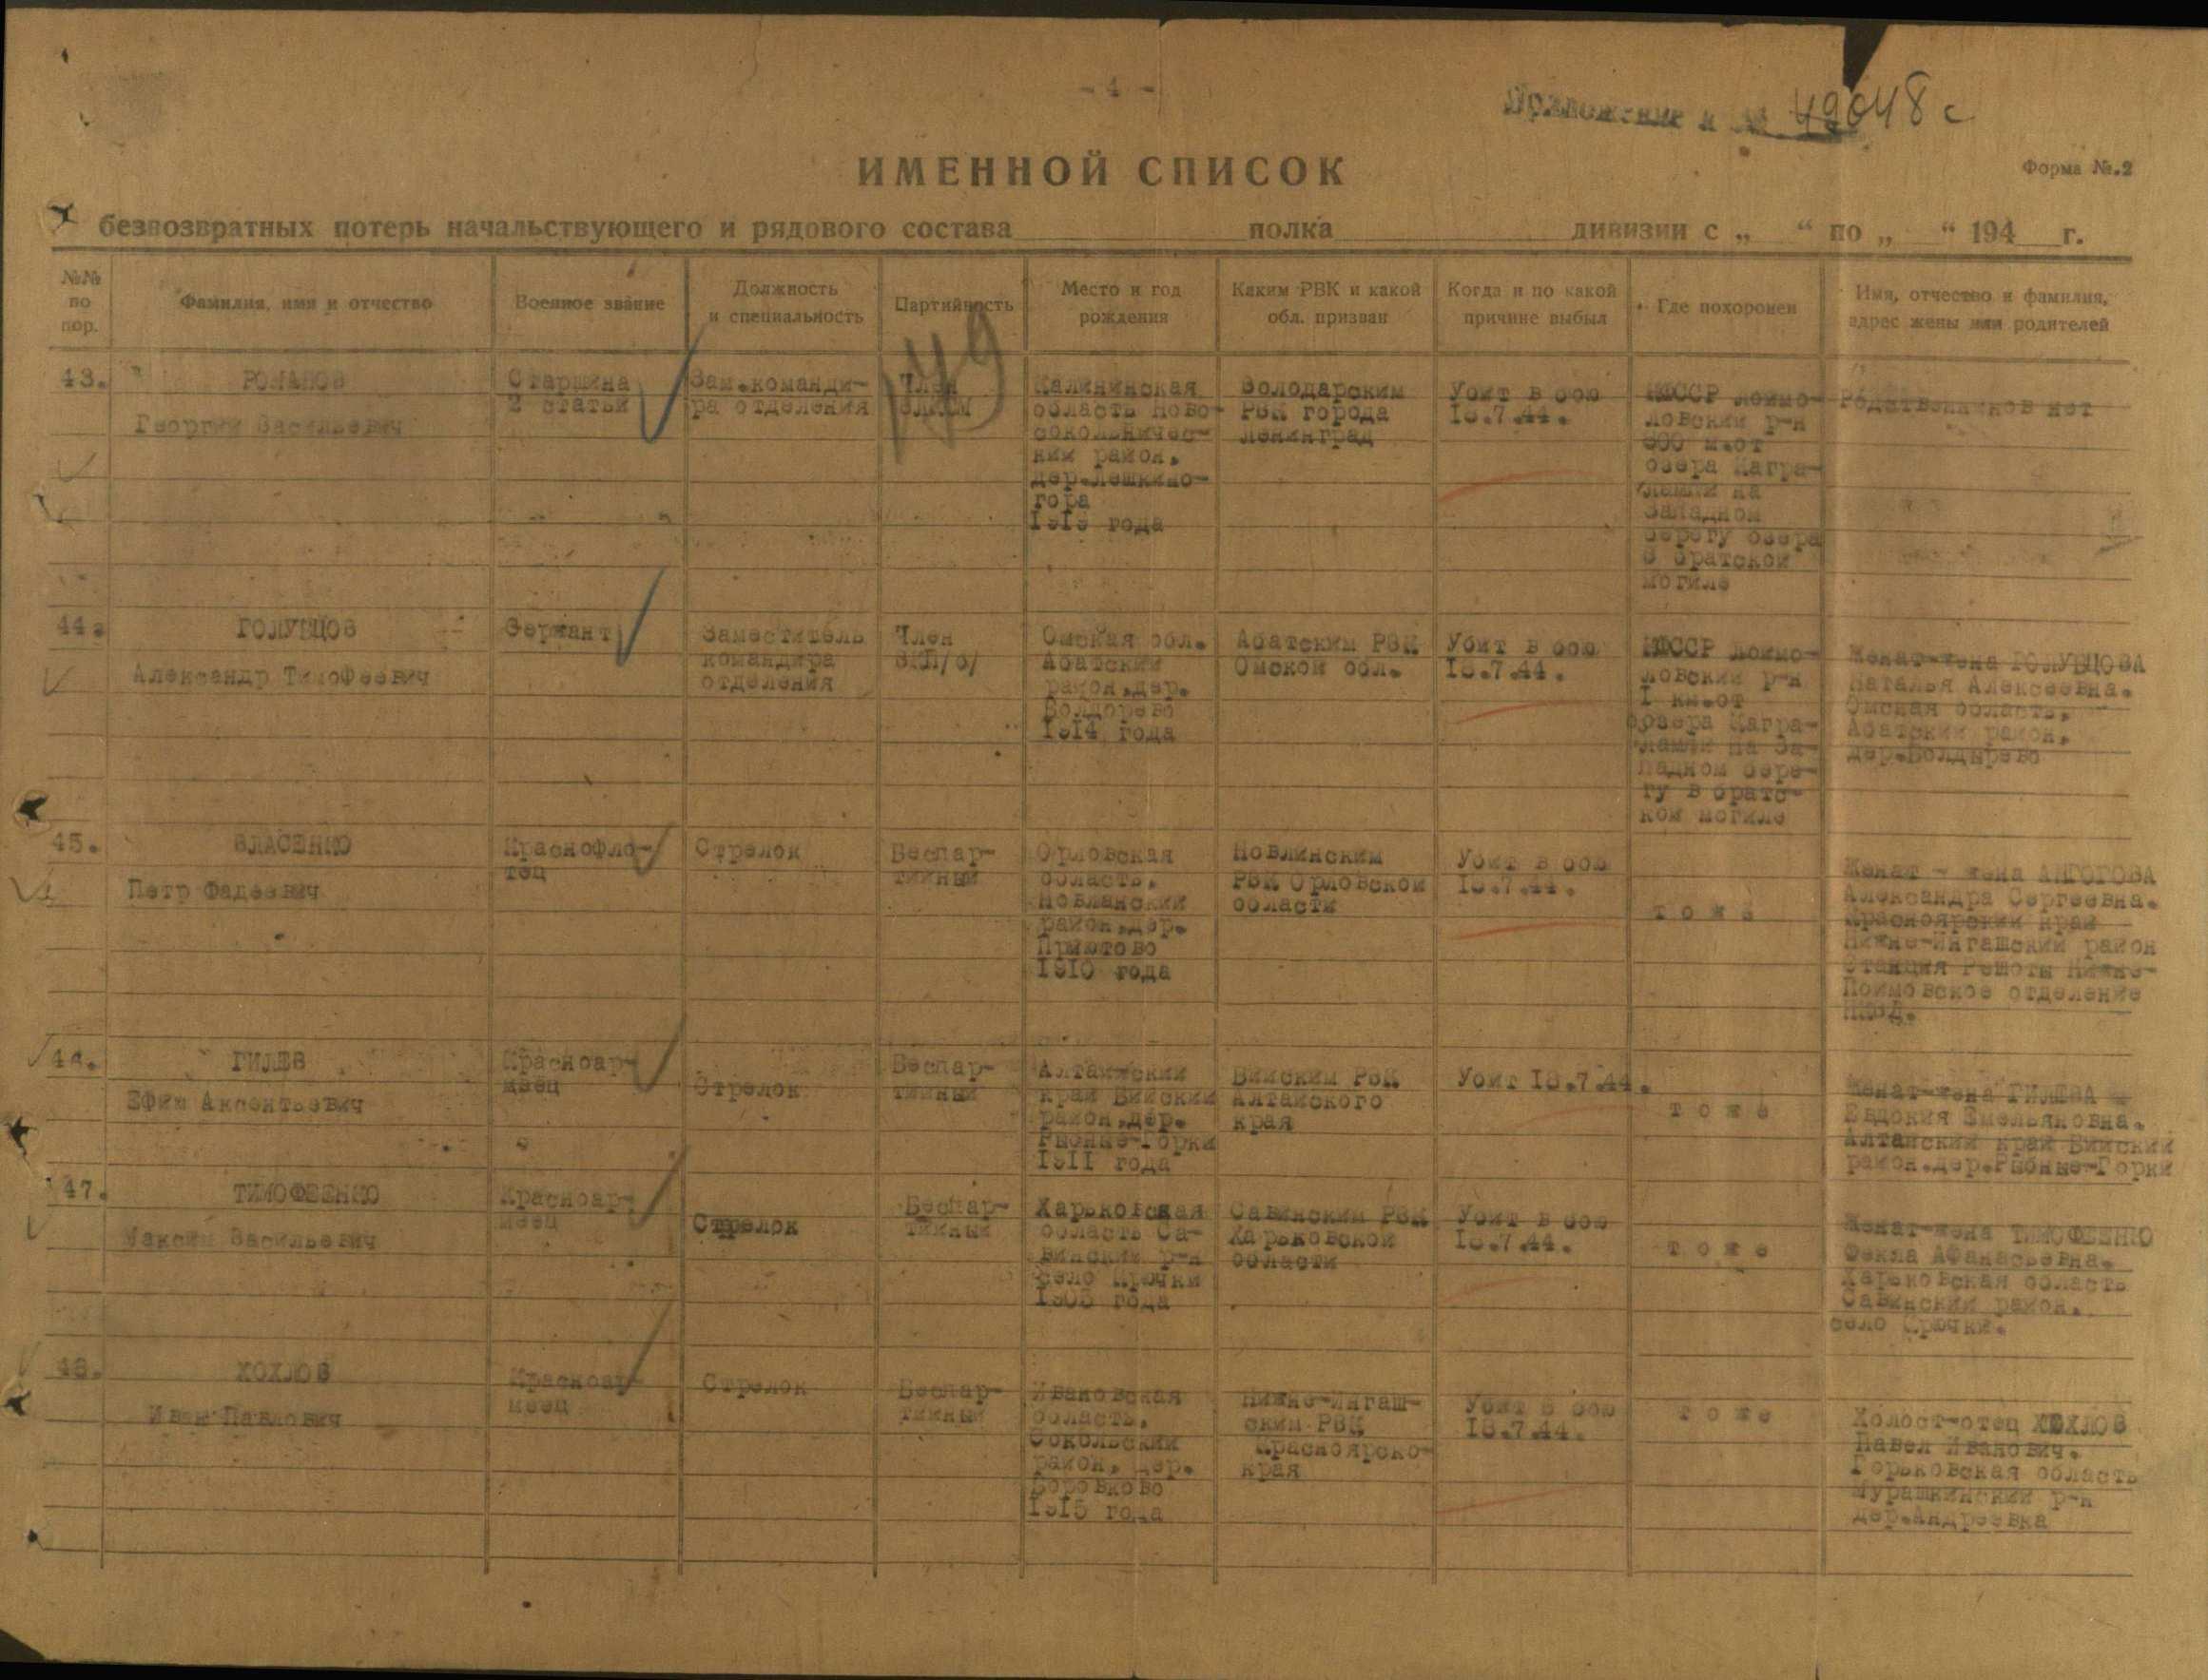 - 4 -
Приложение к № 49048с
ИМЕННОЙ СПИСОК
Форма №.2
безвозвратных потерь начальствующего и рядового состава полка дивизии с „ “ по „ “ 194 г.
№№ по пор.
Фамилия, имя и отчество
Военное звание
Должность и специальность
Партийность
Место и год рождения
Каким РВК и какой обл. призван
Когда и по какой причине выбыл
Где похоронен
Имя, отчество и фамилия, адрес жены или родителей
149
43.
РОМАНОВ
Георгий Васильевич
Старшина
2 статьи
Зам.команди-
ра отделения
Член
ВЛКСМ
Калининская
область Ново-
сокольничес-
кий район,
дер.Лешкино-
гора
1919 года
Володарским
РВК города
Ленинград
Убит в бою
18.7.44.
ловский р-н
800 м.от
озера Кагра-
лампи на
Западном
берегу озера
в братской
могиле
Родственников нет
44.
ГОЛУБЦОВ
Александр Тимофеевич
Сержант
Заместитель
командира
отделения
Член
ВКП/б/
Омская обл.
Абатский
район,дер.
Болдорево
1914 года
Абатским РВК
Омской обл.
Убит в бою
18.7.44.
ловский р-н
1 км.от
озера Кагра-
лампи на За-
падном бере-
гу в братс-
кой могиле
Женат-жена ГОЛУБЦОВА
Наталья Алексеевна.
Омская область,
Абатский район,
дер.Болдырево
45.
ВЛАСЕНКО
Петр Фадеевич
Краснофло-
тец
Стрелок
Беспар-
тийный
Орловская
область,
район,дер.
Приютово
1910 года
РВК Орловской
области
Убит в бою
18.7.44.
т о ж е
Женат - жена АНГОГОВА
Александра Сергеевна.
Красноярский край
Нижне-Ингашский район
Станция Решоты Нижне-
Поймовское отделение
НКВД.
ГИЛЕВ
Ефим Аксентьевич
Красноар-
меец
Стрелок
Беспар-
тийный
Алтайский
край Бийский
район,дер.
Рыбные-Горки
1911 года
Бийским РВК
Алтайского
края
Убит 18.7.44.
т о ж е
Женат-жена ГИЛЕВА
Евдокия Емельяновна.
Алтайский край Бийский
район.дер.Рыбные-Горки
47.
ТИМОФЕЕНКО
Максим Васильевич
Красноар-
меец
Стрелок
Беспар-
тийный
Харьковская
область Са-
винский р-н
село Крючки
1905 года
Савинским РВК
Харьковской
области
Убит в бою
18.7.44.
т о ж е
Женат-жена ТИМОФЕЕНКО
Фекла Афанасьевна.
Харьковская область
Савинский район.
село Крючки.
48.
ХОХЛОВ
Иван Павлович
Красноар-
меец
Стрелок
Беспар-
тийный
Ивановская
область,
Сокольский
район, дер.
Боровково
1915 года
Нижне-Ингаш-
ским РВК
Красноярско-
края
Убит в бою
18.7.44.
т о ж е
Холост-отец ХОХЛОВ
Павел Иванович.
Горьковская область
Мурашкинский р-н
дер.Андреевка